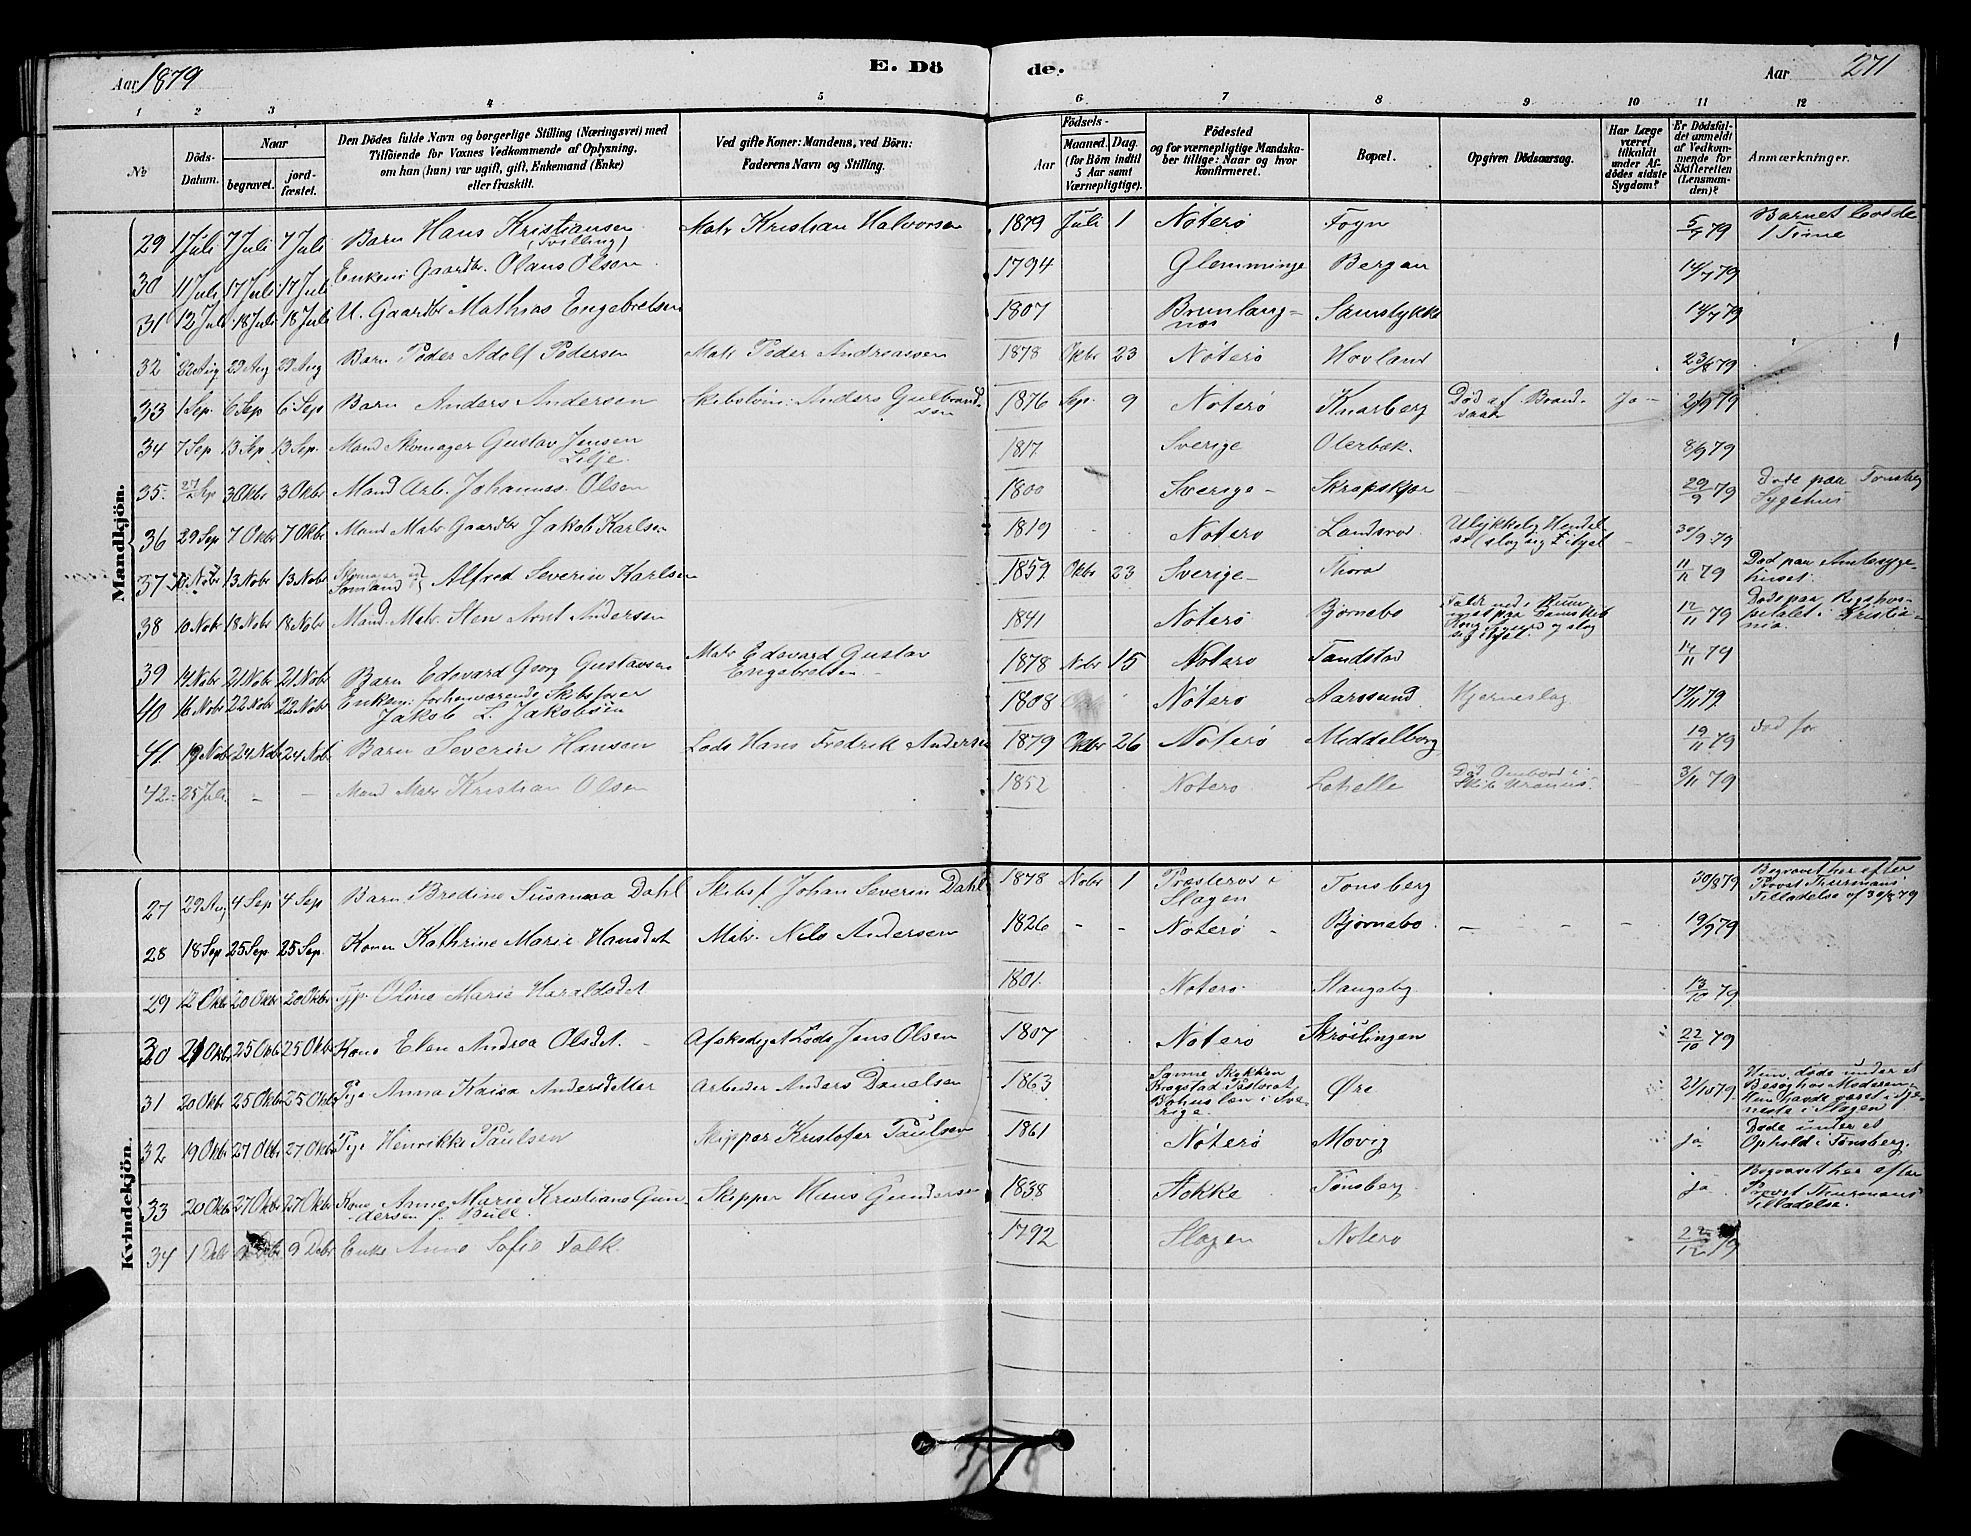 Aar 1879
E. Dö
de.
Aar 271
1 2 3 4 5 6 7 8 9 10 11 12
№
Döds-
Datum.
Naar
begravet.
jord-
fæstet.
Den Dödes fulde Navn og borgerlige Stilling (Næringsvei) med
Tilföiende for Voxnes Vedkommende af Oplysning,
om han (hun) var ugift, gift, Enkemand (Enke)
eller fraskilt.
Ved gifte Koner: Mandens, ved Börn:
Faderens Navn og Stilling.
Födsels-
Aar
Maaned.
Dag.
(for Börn indtil
5 Aar samt
Værnepligtige).
Födested
og for værnepligtige Mandska-
ber tillige: Naar og hvor
konfirmeret.
Bopæl.
Opgiven Dödsaarsag.
Har Læge
været
tilkaldt
under Af-
dödes sidste
Sygdom?
Er Dödsfal-
det anmeldt
af Vedkom-
mende for
Skifteretten
(Lensman-
den)?
Anmærkninger.
Mandkjön.
29 1 Juli 7 Juli 7 Juli Barn Hans Kristiansen Matr Kristian Halvorsen 1879 Juli 1 Nøterø Fogn 5/7 79 Barnet levede
(Tvilling) 1 Time
30 11 Juli 17 Juli 17 Juli Enkem: Gaardbr. Olaus Olsen 1794 Glemminge Bergan 14/7 79
31 12 Juli 18 Juli 18 Juli U. Gaardbr Mathias Engebretsen 1807 Brunlang-
næs Samstykke 14/7 79
32 22 Aug 29 Aug 29 Aug Barn Peder Adolf Pedersen Matr Peder Andreassen 1878 Oktbr 23 Nøterø Hovland 23/8 79
33 1 Sep. 6 Sep 6 Sep Barn Anders Andersen Skibstøm: Anders Gulbrand-
sen 1876 Sep. 9 Nøterø Knarberg Død af Brand-
saar Ja - 2/9 79
34 7 Sep 13 Sep 13 Sep. Mand Skomager Gustav Jensen
Lilje 1817 Sverige Olerbæk. 8/9 79
35. 27 Sep 3 Oktbr 3 Oktbr Mand Arb. Johannes Olsen 1800 Sverige - Skrapskjær 29/9 79 Døde paa Tønsberg
Sygehus
36 29 Sep 7 Oktbr 7 Oktbr Mand Matr Gaardbr Jakob Karlsen 1819 Nøterø Landsrød Ulykkelig Hendel-
se (slog sig ihjel - 30/9 79
37 Nobr 13 Nobr 13 Nobr Skomager
Sømand Alfred Severin Karlsen 1859 Oktbr 23 Sverige - Thorød 11/11 79 Død paa Amtssyge-
huset.
38 10 Nobr 18 Nobr 18 Nobr Mand. Matr. Sten Arnt Andersen 1841 Nøterø Bjørnebo Faldt ned i Rum-
met paa Dampskib
Kong Sigurd og slog
sig ihjel. 12/11 79 Døde paa Rigshos-
pitalet i Kristia-
nia.
39 14 Nobr 21 Nobr 21 Nobr Barn Edevard Georg Gustavsen Matr Edevard Gustav
Engebretsen - 1878 Nobr 15 Nøterø Tandstad 14/11 79
40 16 Nobr 22 Nobr 22 Nobr Enkem: forhenværende Skibsfører
Jakob L. Jakobsen 1808 Nøterø Aarøsund Hjerneslag. 17/11 79.
41 19 Nobr 24 Nobr 24 Nobr Barn Severin Hansen Lods Hans Fredrik Andersen 1879 Oktbr 26 Nøterø Middelborg 19/11 79 død for
42 - 25 Juli - - Mand Matr Kristian Olsen 1852 Nøterø Lahelle Død Ombord i
Skib Uranus. 3/11 79
Kvindekjön.
27 29 Aug 4 Sep 4 Sep Barn Bredine Susanna Dahl Skibsf. Johan Severin Dahl 1878 Nobr 1 Præsterød i
Slagen Tønsberg 30/8 79 Begravet her efter
Provst Thurmans
Tilladelse af 30/8 79
28 18 Sep 25 Sep. 25 Sep. Kone Kathrine Marie Hansdat Matr. Nils Andersen 1826 - - Nøterø - Bjørnebo - - - 19/9 79
29 12 Oktbr 20 Oktbr 20 Oktbr Oline Marie Haraldsdat. 1801. Nøterø. Stangeby 13/10 79
30 21 Oktbr 25 Oktbr 25 Oktbr Kone Elen Andrea Olsdat. - Afskediget Lods Jens Olsen 1807 Nøterø Skrøslingen 22/10 79
31 20 Oktbr 25 Oktbr 25 Oktbr Pige Anna Kaisa Andersdatter Arbeider Anders Danelsen 1863
Krogstad Pastorat
Bohuslen i Sve-
rige. Øre 21/10 79 Hun døde under et
Besøg hos Moderen
Hun havde været i Tje-
neste i Slagen
32 19 Oktbr 27 Oktbr 27 Oktbr Pige Henrikke Paulsen Skipper Kristofer Paulsen 1861 Nøterø Movig ja Døde under et
Ophold i Tønsberg.
33 20 Oktbr 27 Oktbr 27 Oktbr Kone Anne Marie Kristiane Gun-
dersen f. Bull. Skipper Hans Gundersen 1838 Stokke Tønsberg. ja Begravet her efter
Provst Thurmans
Tilladelse.
34 1 Debr 9 Debr Enke Anne Sofie Falk. 1792 Slagen Nøterø 22/12 79